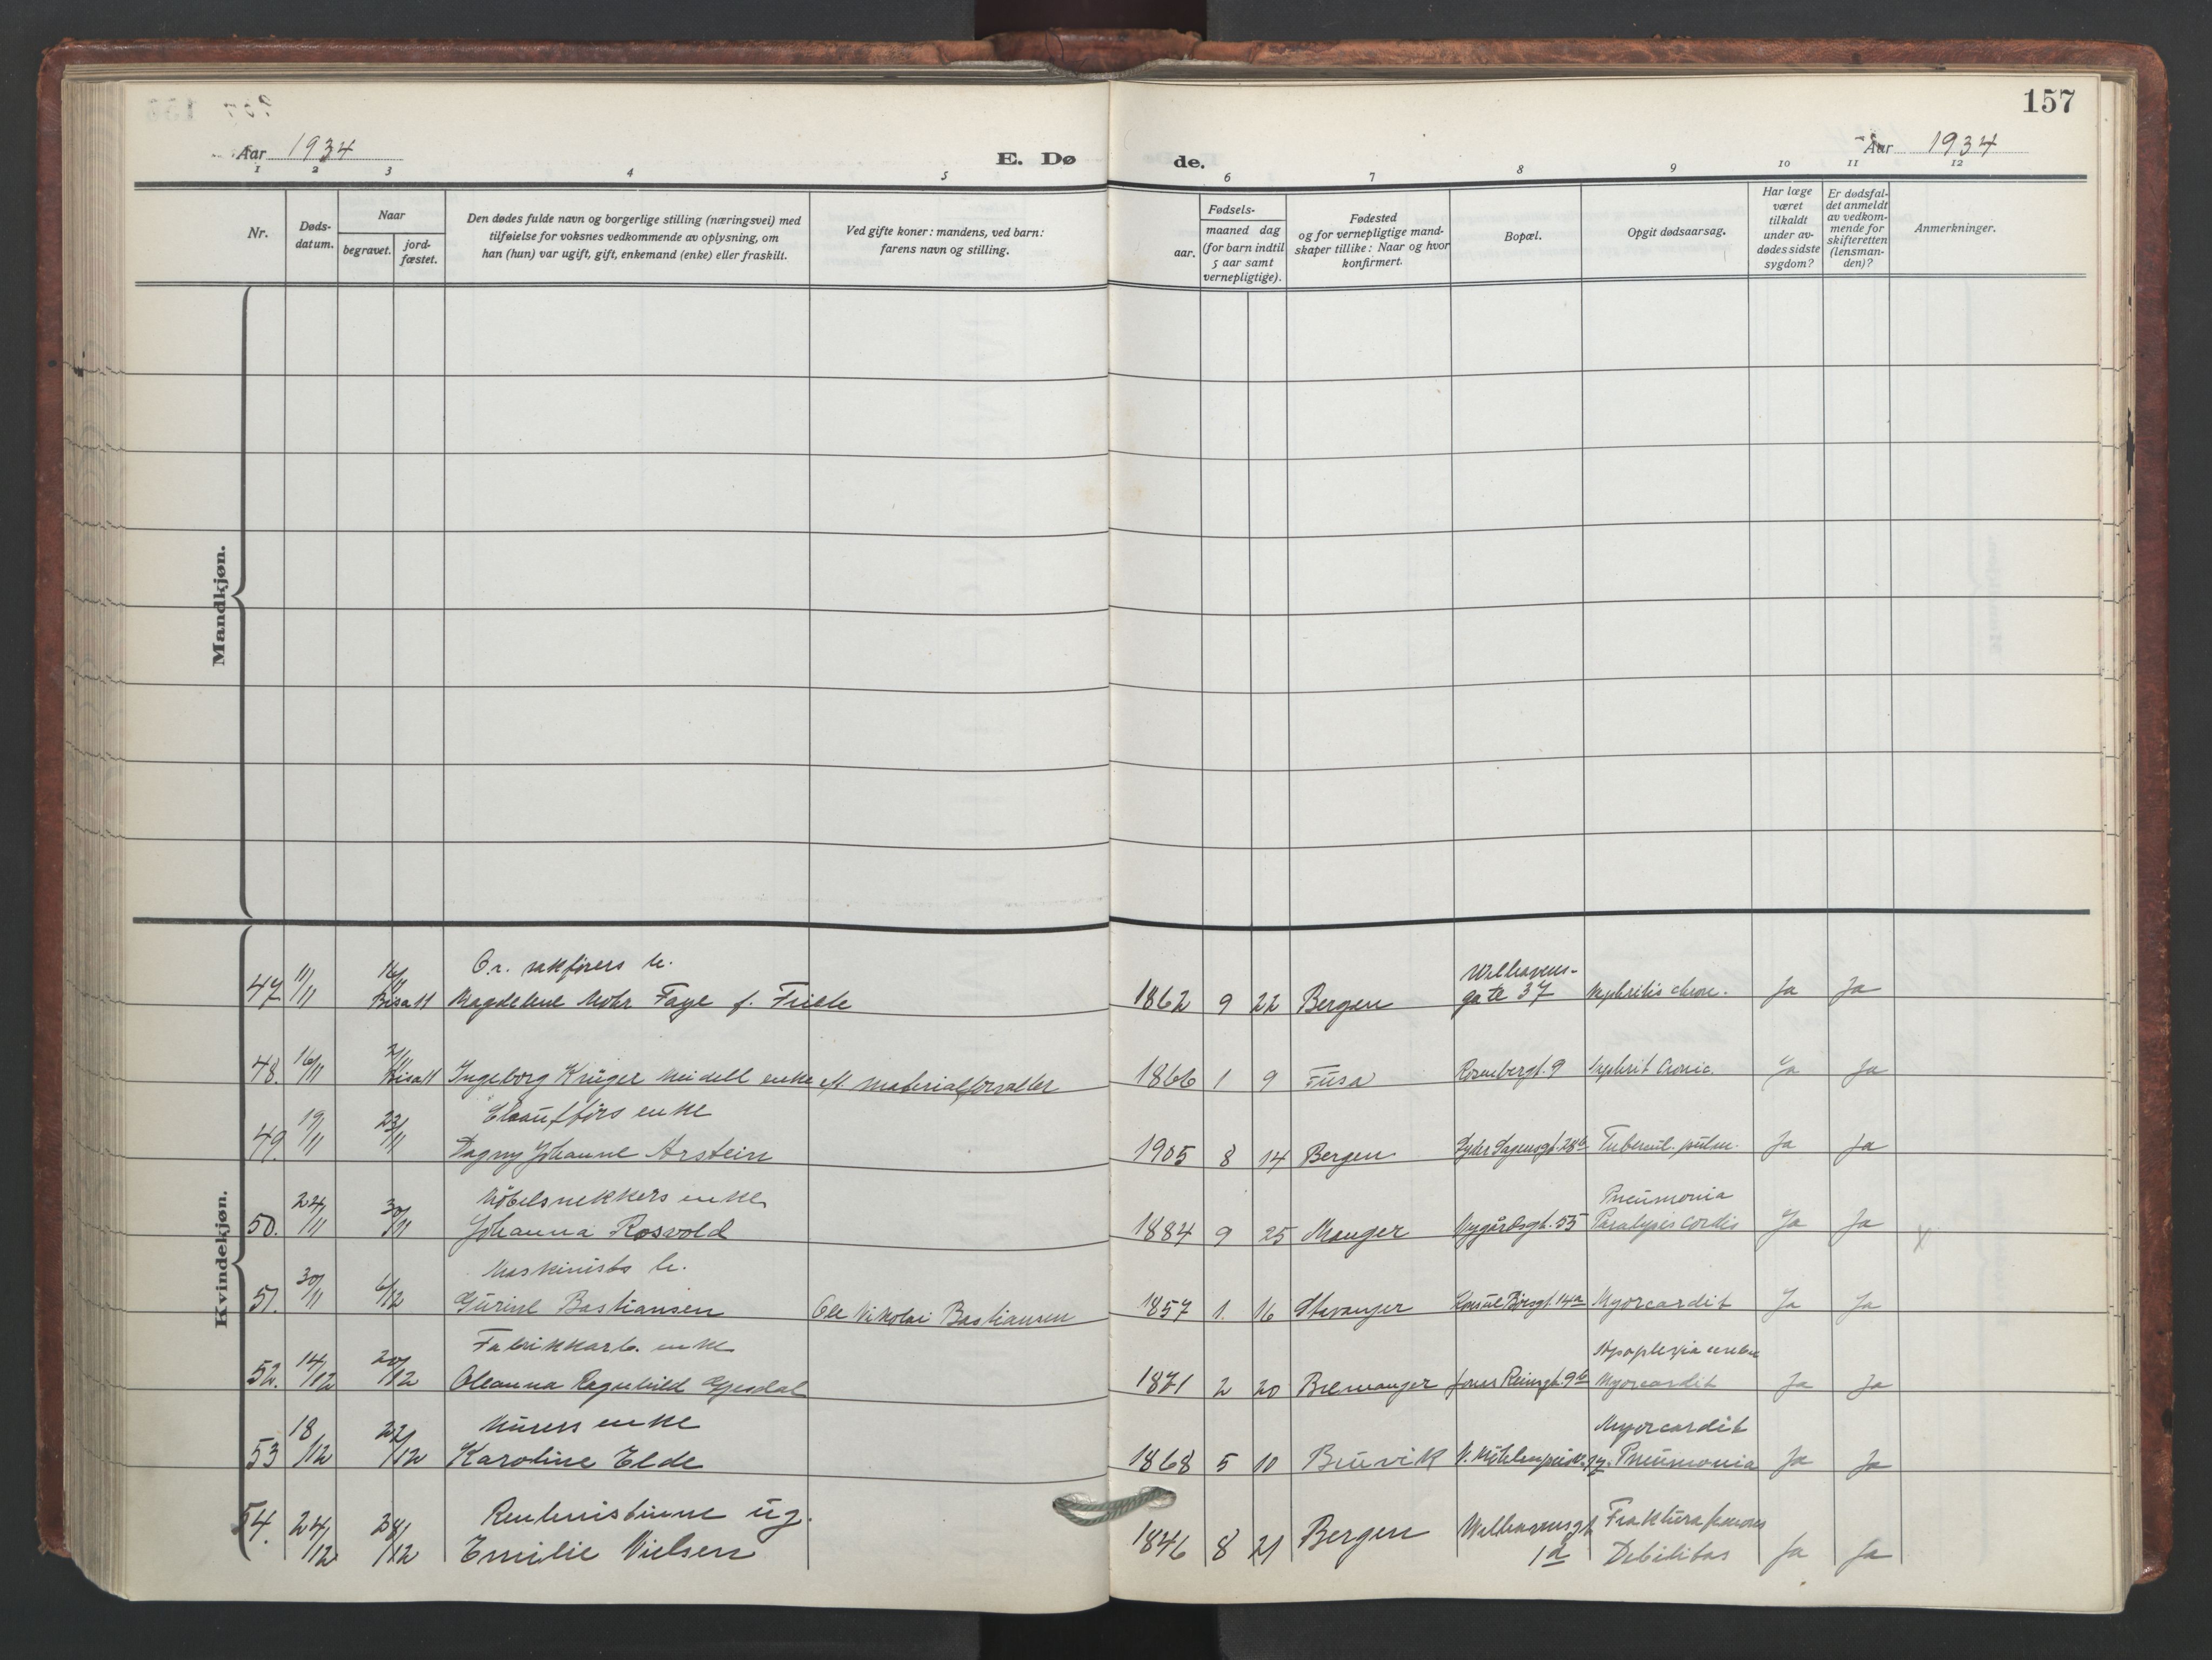 157
Aar 1934
E. Dø de.
Aar 1934
1 2 3 4 5 6 7 8 9 10 11 12
Nr.
Døds-
datum.
Naar
begravet.
jord-
fæstet.
Den dødes fulde navn og borgerlige stilling (næringsvei) med
tilføielse for voksnes vedkommende av oplysning, om
han (hun) var ugift, gift, enkemand (enke) eller fraskilt.
Ved gifte koner: mandens, ved barn:
farens navn og stilling.
Fødsels-
aar.
maaned dag
(for barn indtil
5 aar samt
vernepligtige).
Fødested
og for vernepligtige mand-
skaper tillike: Naar og hvor
konfirmert.
Bopæl.
Opgit dødsaarsag.
Har læge
været
tilkaldt
under av-
dødes sidste
sygdom?
Er dødsfal-
det anmeldt
av vedkom-
mende for
skifteretten
(lensman-
den)?
Anmerkninger.
Mandkjøn.
Kvindekjøn.
O.r. sakførers h.
47 11/11 16/11 Magdelene Mohr Faye f. Friele 1862 9 22 Bergen Welhavens-
gate 37 Nephritis chron. Ja Ja
48. 16/11 21/11 Ingeborg Krüger Meidell enke e/t materialforvalter 1866 1 9 Fusa Rosenbergt. 9 Nephrit Cronic. Ja Ja
enke
49. 19/11 23/11 Dagny Johanne Arstein 1905 8 14 Bergen Lyder Sagensgt. 28b Tubercul. pulm. Ja Ja
Möbelsnekkers enke Pneumonia
50. 24/11 30/11 Johanna Rosvold 1884 9 25 Manger Nygårdsgt. 55 Paralysis Cordis Ja Ja x
Maskinists h.
51. 30/11 6/12 Gurine Bastiansen Ole Nikolai Bastiansen 1857 1. 16 Stavanger Konsul Börsgt. 14a Myorcardit Ja Ja
Fabrikkarb. enke
52. 14/12 20/12 Oleanna Ragnhild Gjesdal 1871 2 20 Bremanger Jonas Reinsgt. 9b Myorcardit Ja Ja
Murers enke Myorcardit
53 18/12 22/12 Karoline Elde 1868 5 10 Bruvik Pneumonia Ja Ja
Rentenistinne ug. Fraktura femoris
54. 24/12 28/12 Emilie Nielsen 1846 8 21 Bergen Welhavensgt
1a Debilitas Ja Ja